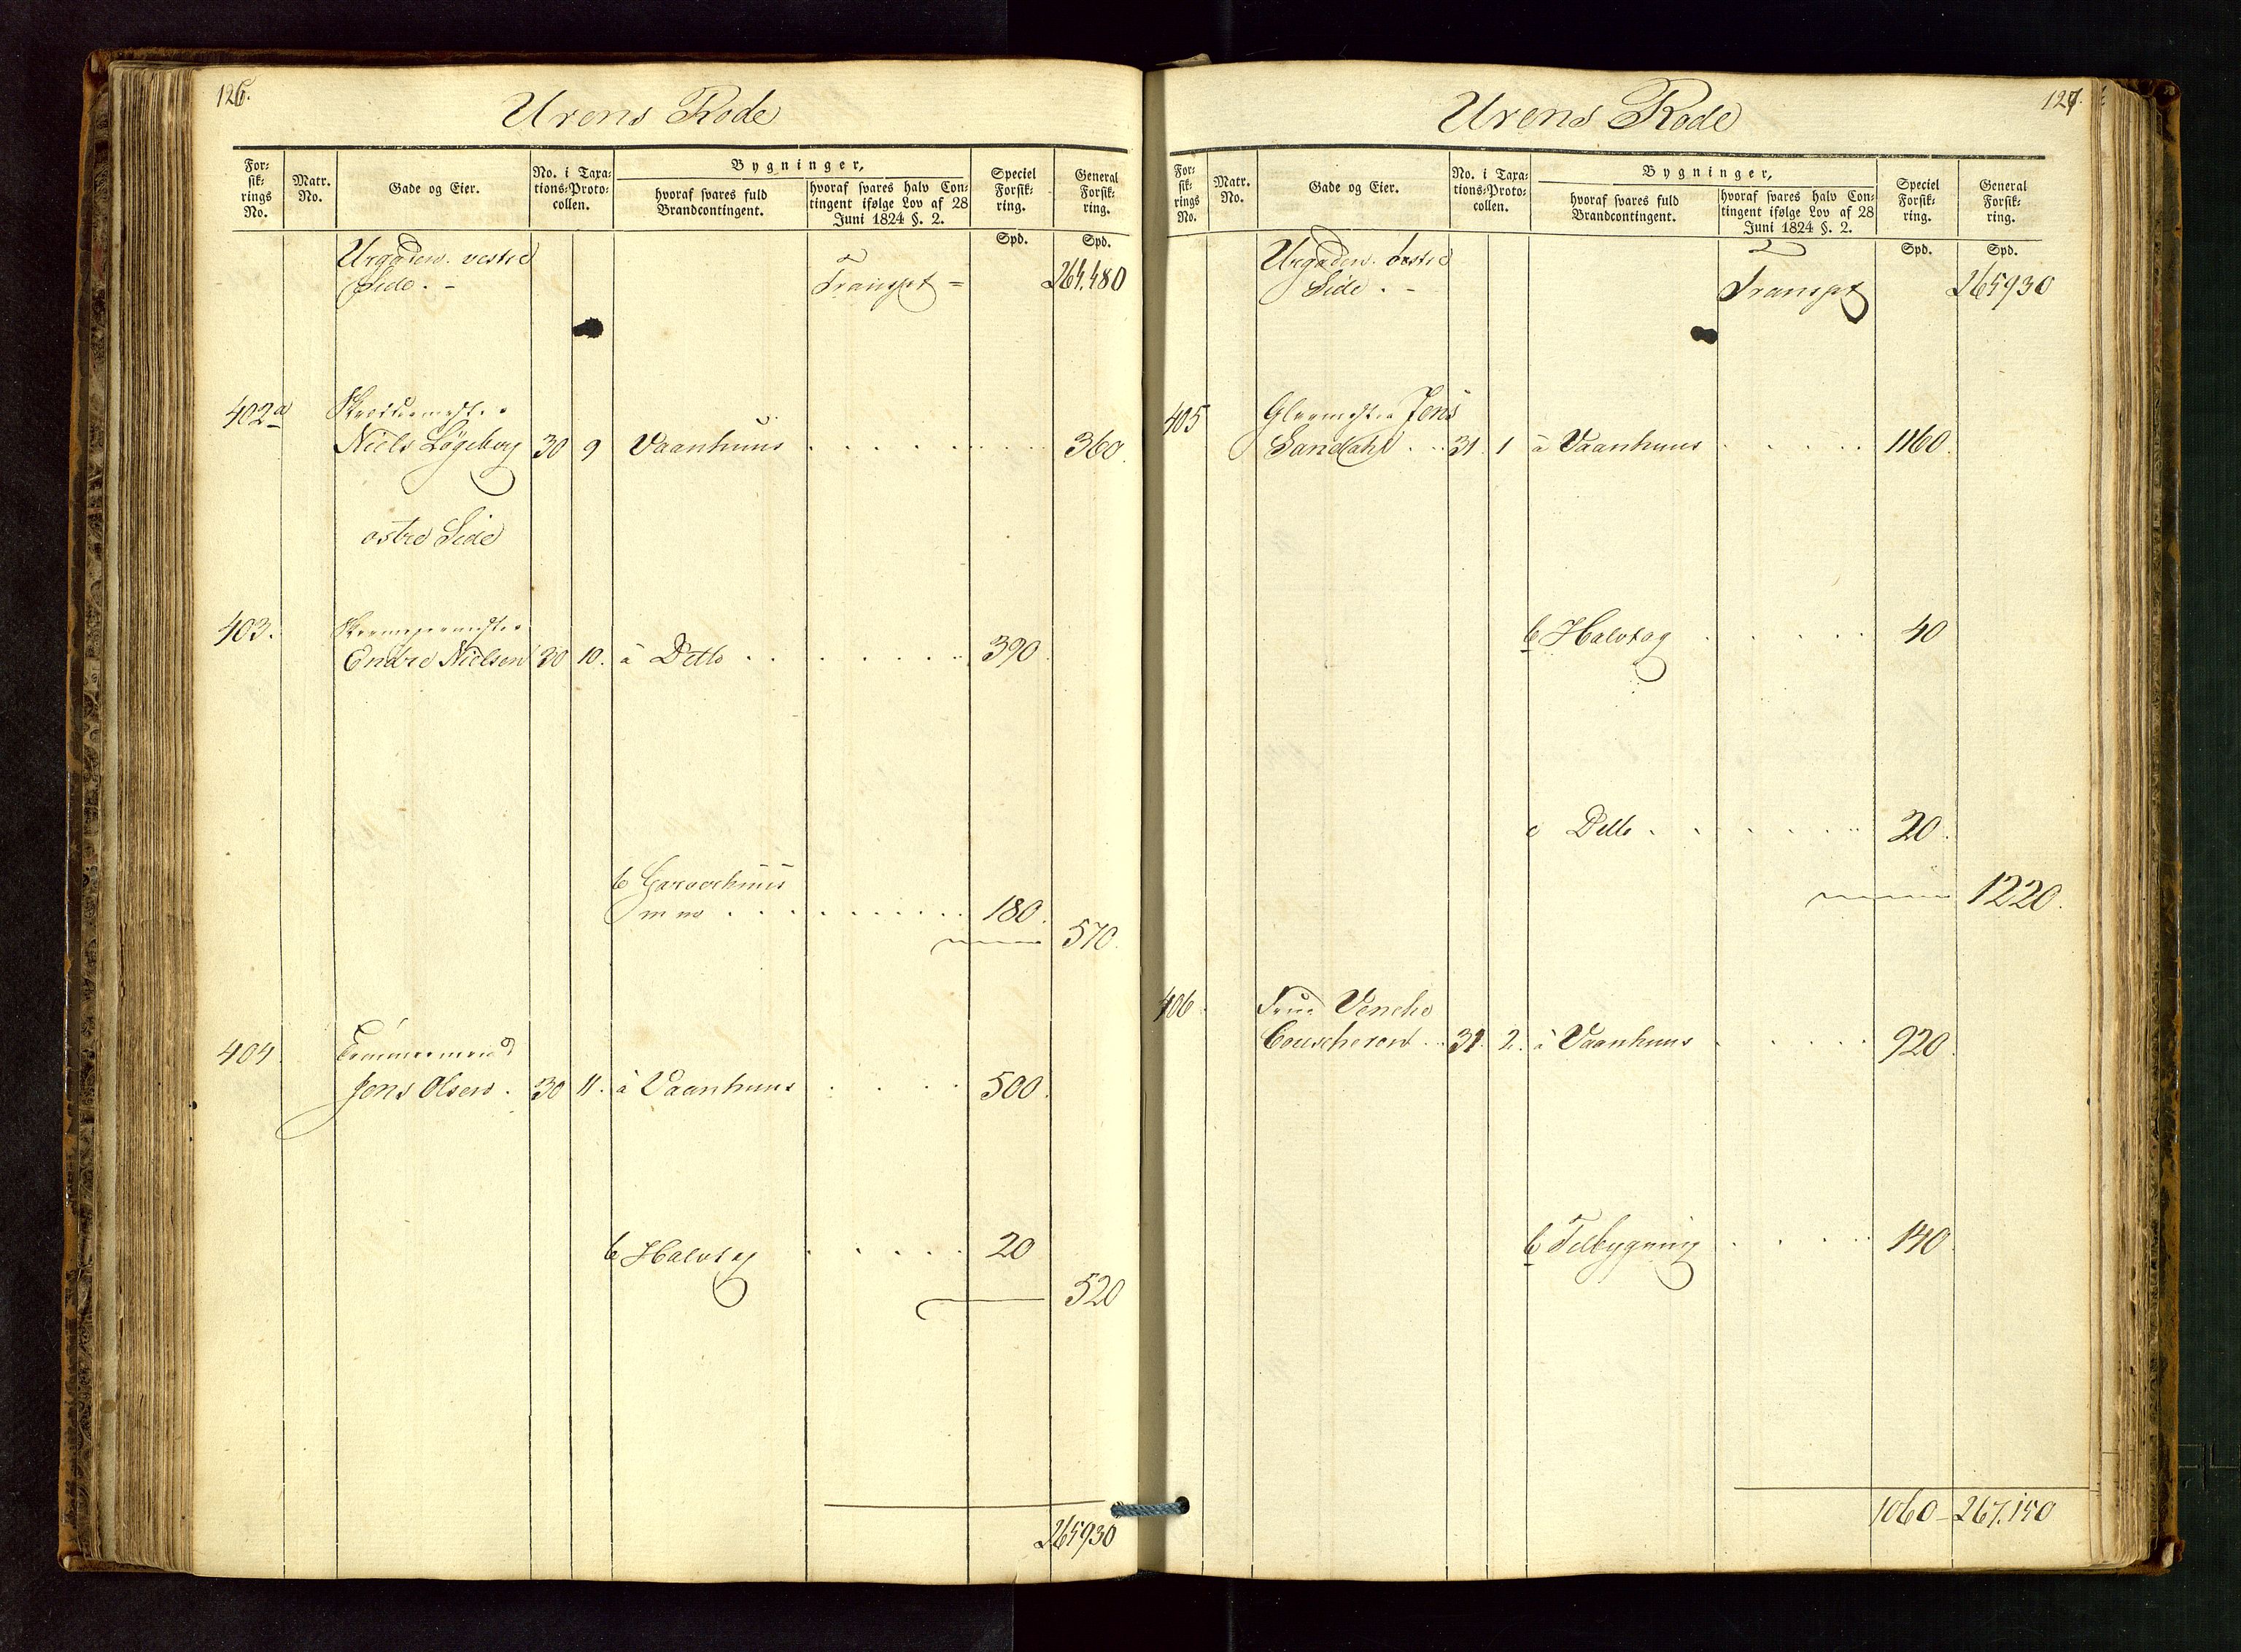 126.
Urens Rode
For-
sik-
rings
No.
Matr.
No.
Gade og Eier.
No. i Taxa-
tions-Proto-
collen.
Bygninger,
hvoraf svares fuld
Brandcontingent.
hvoraf svares halv Con-
tingent ifølge Lov af 28
Juni 1824 §. 2.
Speciel
Forsik-
ring.
General
Forsik-
ring.
Spd.
Spd.
Urgaden vestre
Side. -
Transpt = 264.480
402a
Niels Løgeberg 30 9 Vaanhuus 360.
østre Side
403.
Endre Nielsen 30 10. a Detto 390.
b Garverhuus
m m 180.
570.
404. Tømmermand
Jens Olsen. 30 11. a Vaanhuus 500.
b Halvtag 20
520
265930
127.
Urens Rode
For-
sik-
rings
No.
Matr.
No.
Gade og Eier.
No. i Taxa-
tions-Proto-
collen.
Bygninger,
hvoraf svares fuld
Brandcontingent.
hvoraf svares halv Con-
tingent ifølge Lov af 28
Juni 1824 §. 2.
Speciel
Forsik-
ring.
General
Forsik-
ring.
Spd.
Spd.
Urgaden østre
Side. -
Transpt 265930
405 Glarmester Jens
Sandahl 31. 1 a Vaanhuus 1160.
b Halvtag 40
c Detto 20.
1220.
406. Frue Venche
Coucheront 31. 2. a Vaanhuus 920.
b Tilbygning 140.
1060 - 267.150